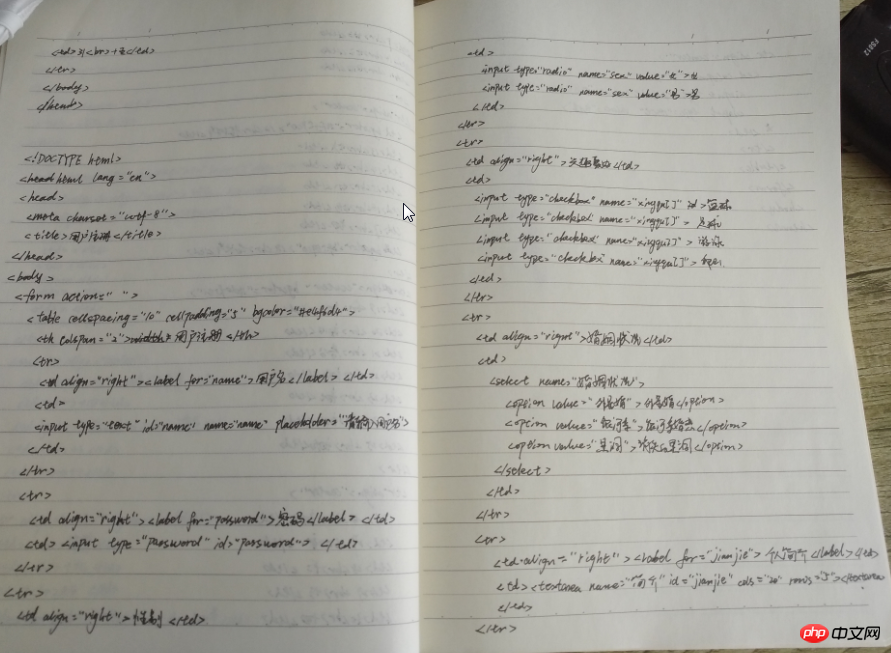 <td>31 十五</td>
</tr>
</body>
</html>
<!DOCTYPE html>
<head html lang="en">
<head>
<meta charset="utf-8">
<title>用户注册</title>
</head>
<body>
<form action=" ">
<table cellspacing="10" cellpadding="5" bgcolor="#e4f6d4">
<th colspan="2">用户注册</th>
<tr>
<td align="right"><label for="name">用户名</label></td>
<td>
<input type="text" id="name" name="name" placeholder="请输入用户名">
</td>
</tr>
<tr>
<td align="right"><label for="password">密码</label></td>
<td><input type="password" id="password"></td>
</tr>
<tr>
<td align="right">性别</td>
<td>
<input type="radio" name="sex" value="女">女
<input type="radio" name="sex" value="男">男
</td>
</tr>
<tr>
<td align="right">兴趣</td>
<td>
<input type="checkbox" name="xingqu[]">篮球
<input type="checkbox" name="xingqu[]">足球
<input type="checkbox" name="xingqu[]">游泳
<input type="checkbox" name="xingqu[]">
</td>
</tr>
<tr>
<td align="right">婚姻状况</td>
<td>
<select name="婚姻状况">
<option value=""></option>
<option value=""></option>
<option value=""></option>
</select>
</td>
</tr>
<tr>
<td align="right"><label for="jianjie">个人简介</label></td>
<td><textarea name="简介" id="jianjie" cols="20" rows="5"></textarea>
</td>
</tr>
php 中文网